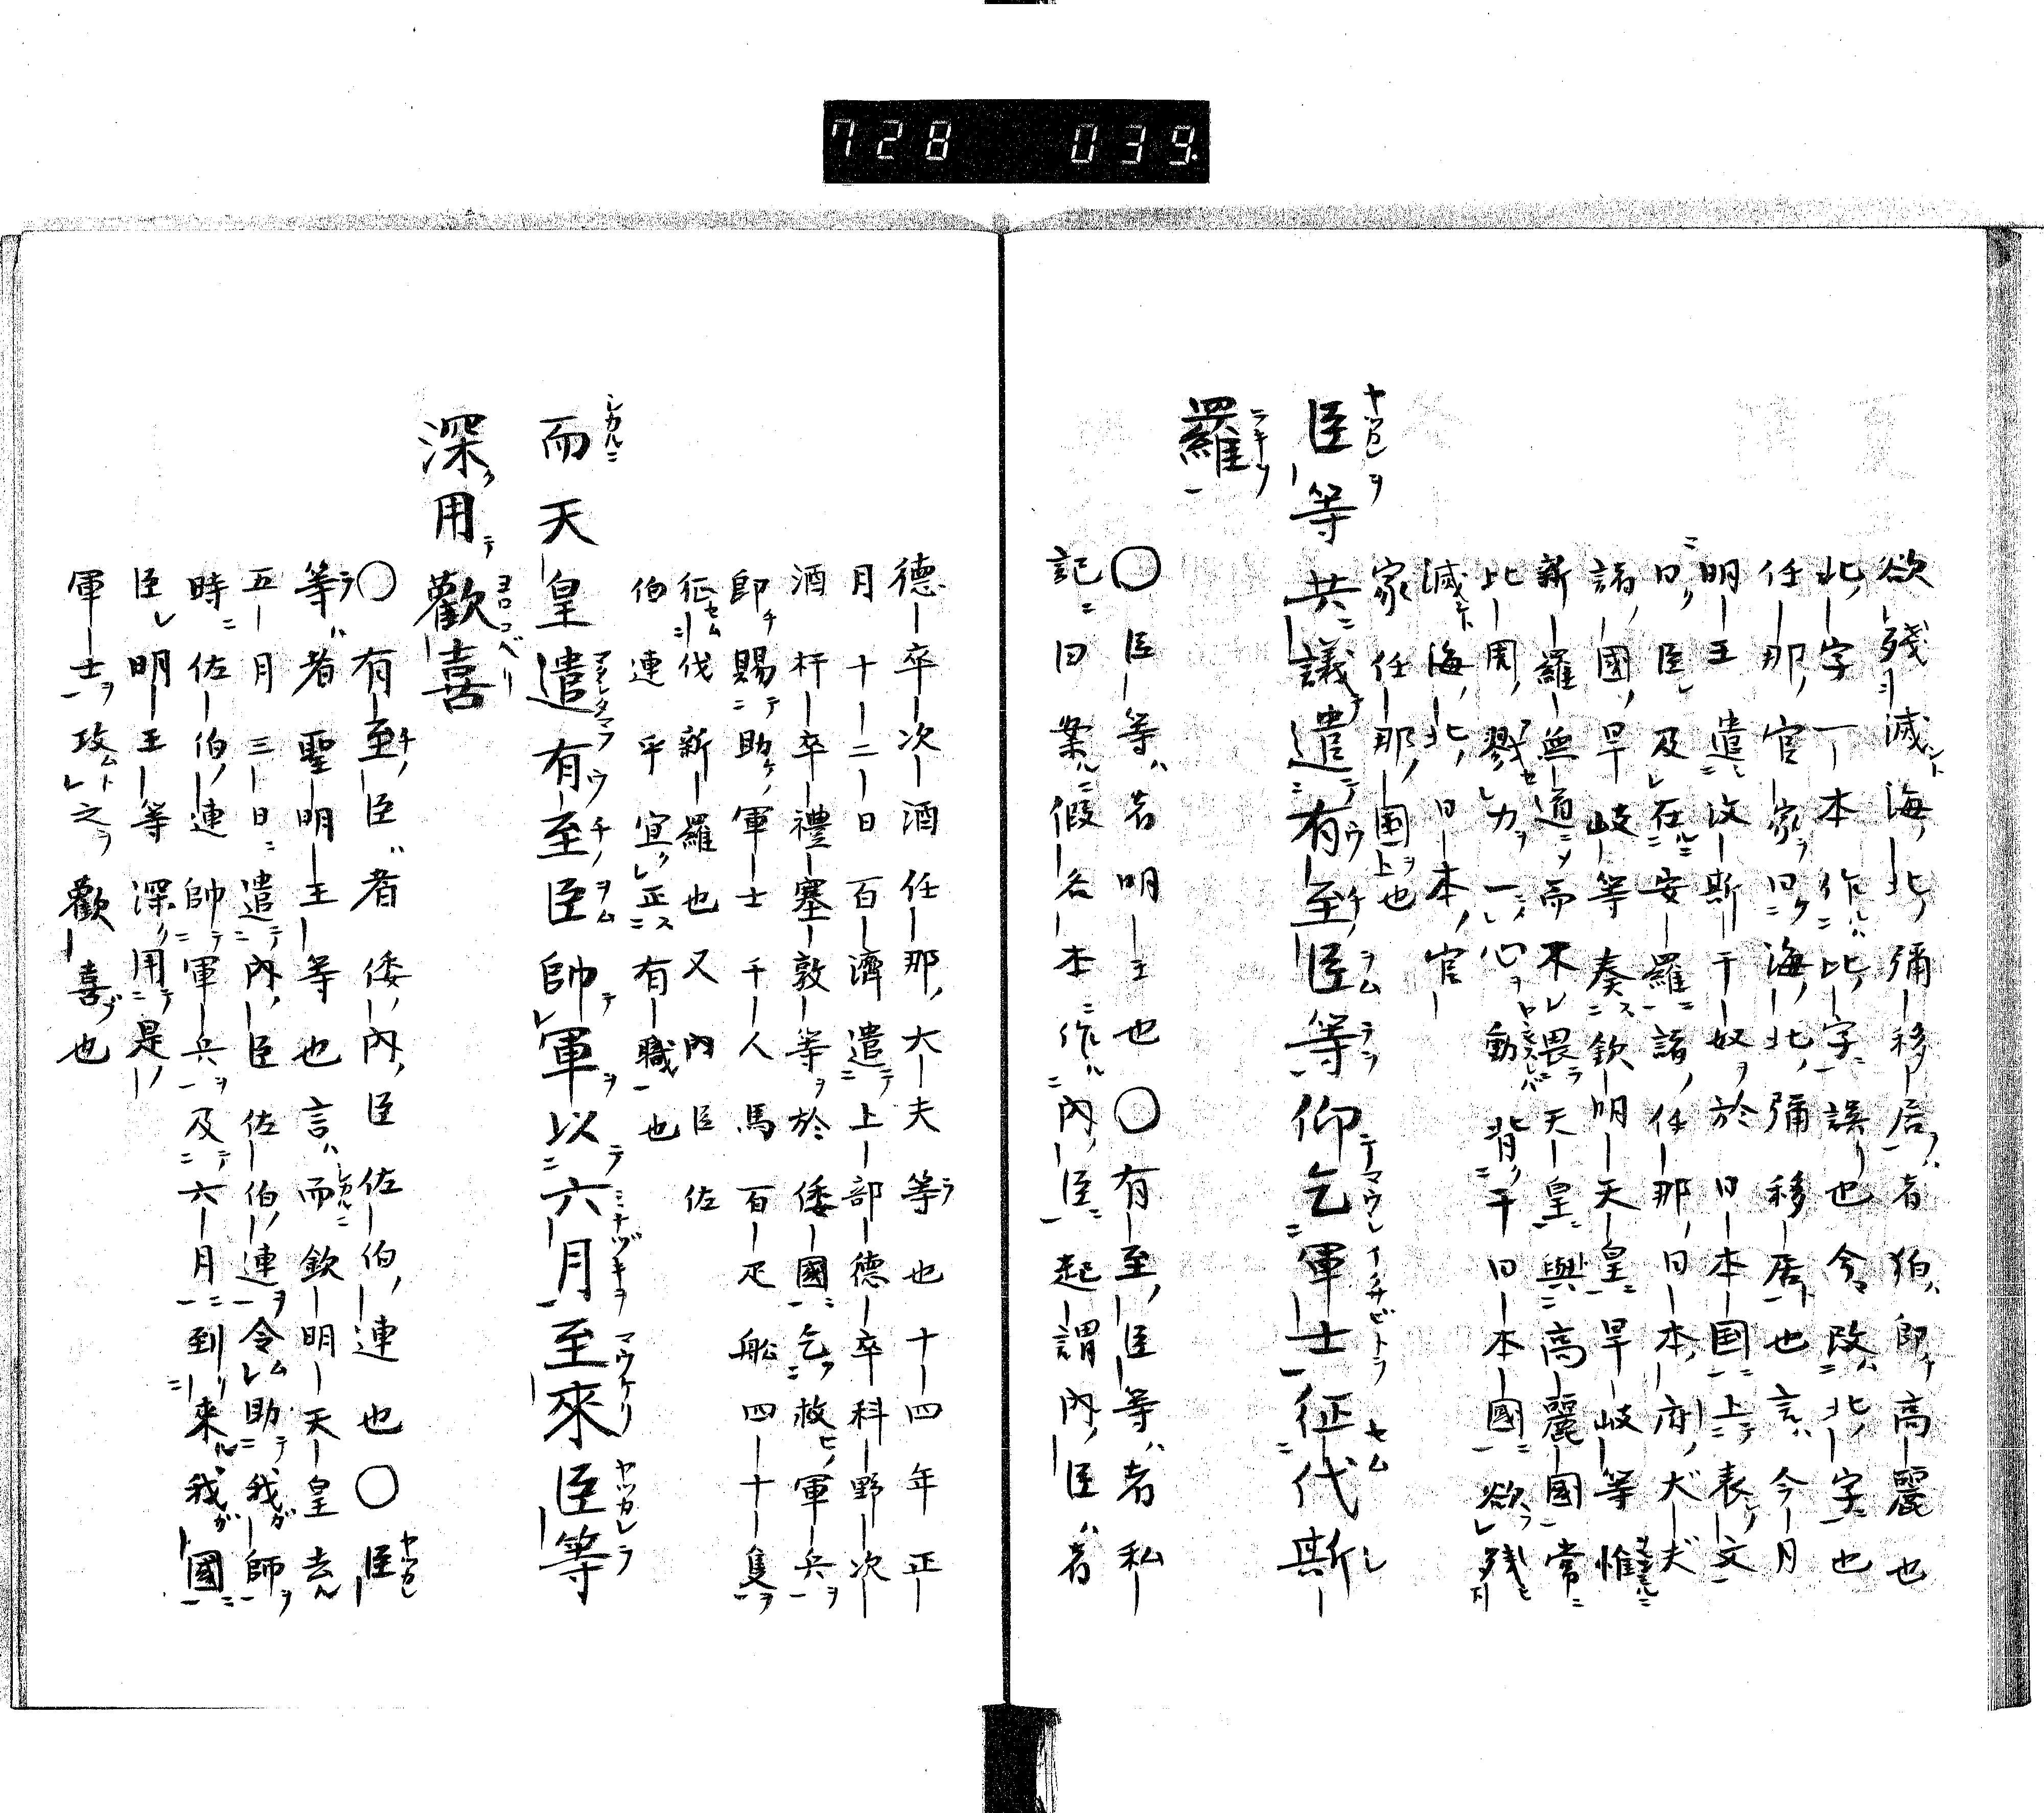 728 039.
欲殘滅海北彌移居者狛卽高麗也
北字一本作比字誤也今改北字也
任那官家曰海北彌移居也言今月
明王遣汶斯干奴於日本国上表文
曰臣及在安羅諸任那日本府大夫
諸國旱岐等奏欽明天皇旱岐等惟
新羅無道而不畏天皇與高麗國常
比周戮力一心動背干日本國欲殘
滅海北日本官
家任那国也
臣等共議遣有至臣等仰乞軍士征代斯
羅
〇臣等者明王也〇有至臣等者私
記曰案假名本作內臣起謂內臣者
德卒次酒任那大夫等也十四年正
月十二日百濟遣上部德卒科野次
酒杆卒禮塞敦等於倭國乞救軍兵
卽賜助軍士千人馬百疋船四十隻
征伐新羅也又內臣佐
伯連乎宜正有職也
而天皇遣有至臣帥軍以六月至來臣等
深用歡喜
〇有至臣者倭內臣佐伯連也〇臣
等者聖明王等也言而欽明天皇去
五月三日遣內臣佐伯連令助我師
時佐伯連帥軍兵及六月到來我國
臣明王等深用是
軍士攻之歡喜也